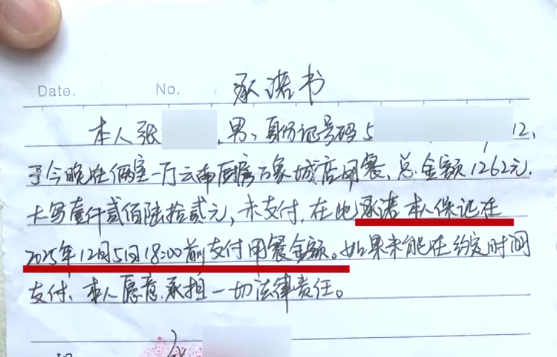 承诺书
Date. No.
本人张 ,男、身份证号码5 12,
于今晚在俩室一厅云南厨房万象城店用餐、总金额1262元.
大写壹仟贰佰陆拾贰元,未支付,在此承诺本人保证在
2025年12月5日18:00前支付用餐金额。如果未能在约定时间
支付、本人愿意承担一切法律责任。